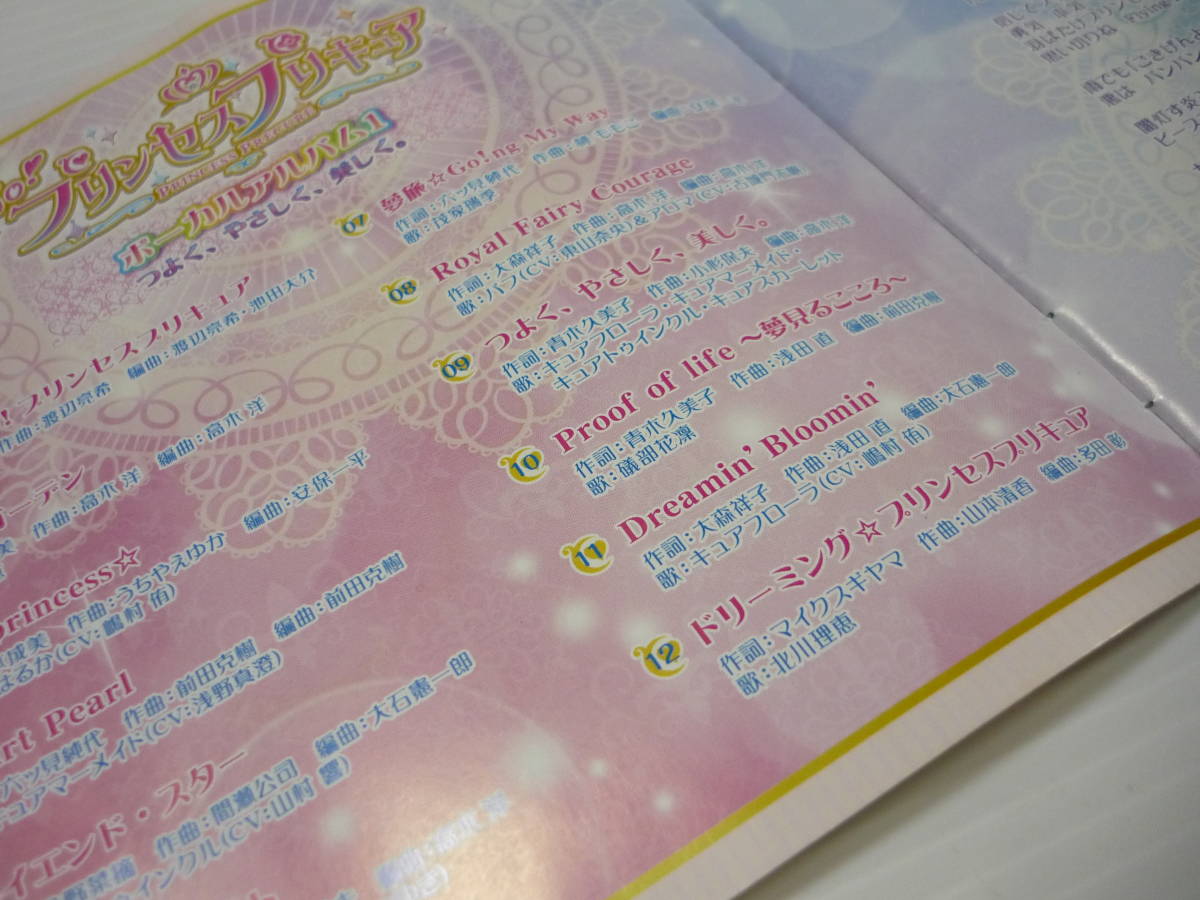 プリンセスプリキュア
PRINCESS PRECURE
ボーカルアルバム1
つよく、やさしく、美しく。
プリンセスプリキュア
作曲：渡辺亮希 編曲：渡辺亮希・池田大介
ガーデン
作曲：高木 洋 編曲：高木 洋
princess☆
成美 作曲：うちやえゆか 編曲：安保一平
はるか(CV：嶋村 侑)
rt Pearl
六ツ見純代 作曲：前田克樹 編曲：前田克樹
キュアマーメイド(CV：浅野真澄)
イエンド・スター
野菜摘 作曲：間瀬公司 編曲：大石憲一郎
ウインクル(CV：山村 響)
07 夢旅☆Go!ng My Way
作詞：六ツ見純代 作曲：
歌：茂家瑞季
08 Royal Fairy Courage
作詞：大森祥子 作曲：高木 洋 編曲：高木 洋
歌：パフ(CV：東山奈央)&アロマ(CV：古城門志帆)
09 つよく、やさしく、美しく。
作詞：青木久美子 作曲：小杉保夫 編曲：高木 洋
歌：キュアフローラ・キュアマーメイド・
キュアトゥインクル・キュアスカーレット
10 Proof of life ～夢見るこころ～
作詞：青木久美子 作曲：浅田 直 編曲：前田克樹
歌：礒部花凜
11 Dreamin' Bloomin'
作詞：大森祥子 作曲：浅田 直 編曲：大石憲一郎
歌：キュアフローラ(CV：嶋村 侑)
12 ドリーミング☆プリンセスプリキュア
作詞：マイクスギヤマ 作曲：山本清香 編曲：多田彰
歌：北川理恵
雨でも「ごきげん